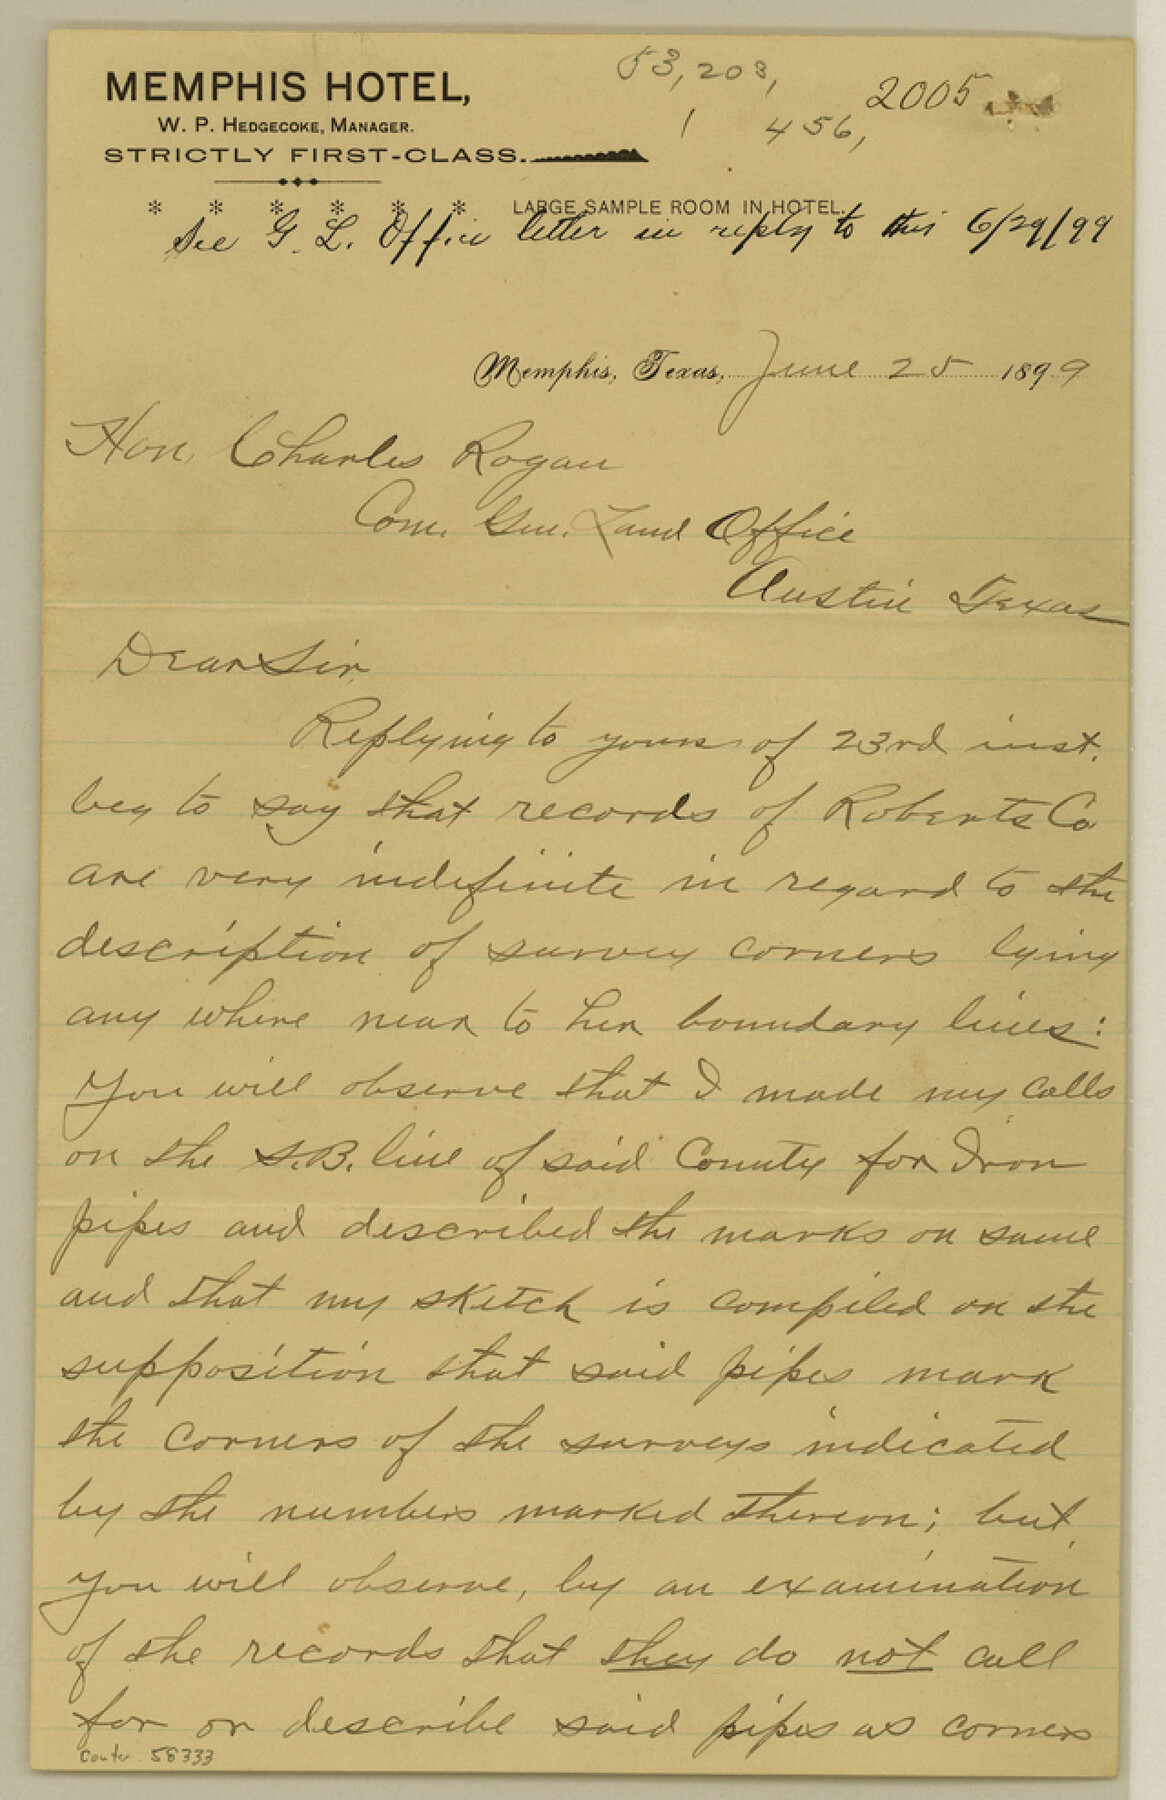 53,208,
2005
1 456,
MEMPHIS HOTEL,
W. P. HEDGECOKE, MANAGER.
STRICTLY FIRST-CLASS.
* * * * * * LARGE SAMPLE ROOM IN HOTEL.
See G. L. Office letter in reply to this 6/29/99
Memphis, Texas, June 25 1899
Hon. Charles Rogan
Com. Gen. Land Office
Austin Texas
Dear Sir
Replying to yours of 23rd inst.
beg to say that records of Roberts Co
are very indefinite in regard to the
description of survey corners lying
any where near to her boundary lines:
You will observe that I made my calls
on the S.B. line of said County for Iron
pipes and described the marks on same
and that my sketch is compiled on the
supposition that said pipes mark
the corners of the surveys indicated
by the numbers marked thereon; but
you will observe, by an examination
of the records that they do not call
for or describe said pipes as corners
Counter 58333